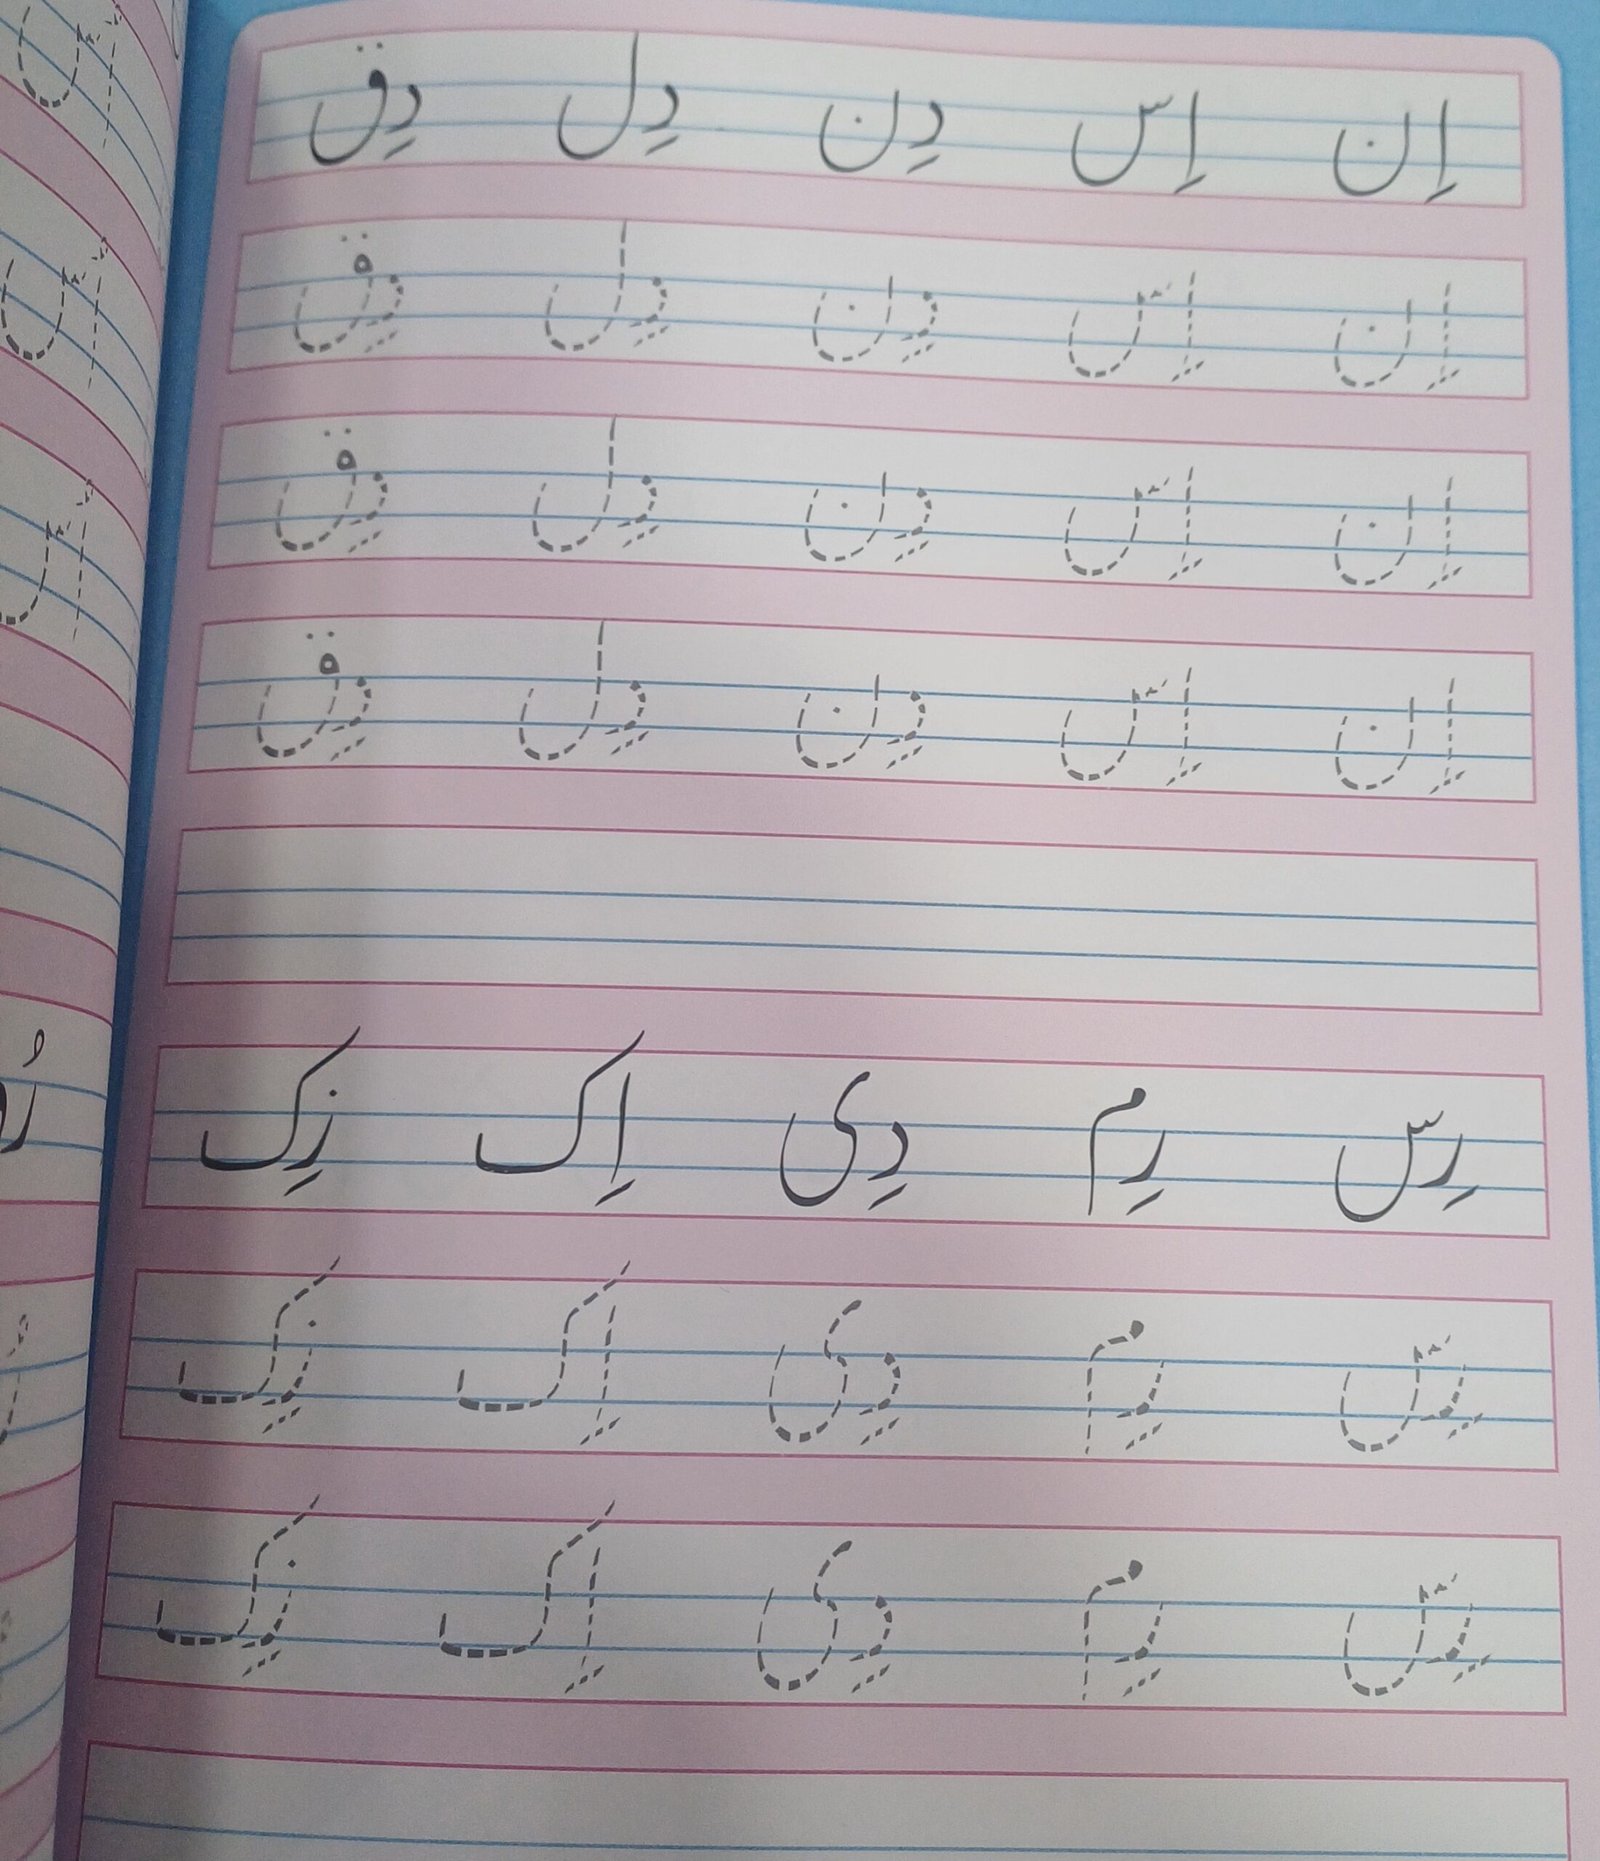 اِن اِس دِن دِل دِق
اِن اِس دِن دِل دِق
اِن اِس دِن دِل دِق
اِن اِس دِن دِل دِق
رِس رِم دِی اِک زِک
رِس رِم دِی اِک زِک
رِس رِم دِی اِک زِک